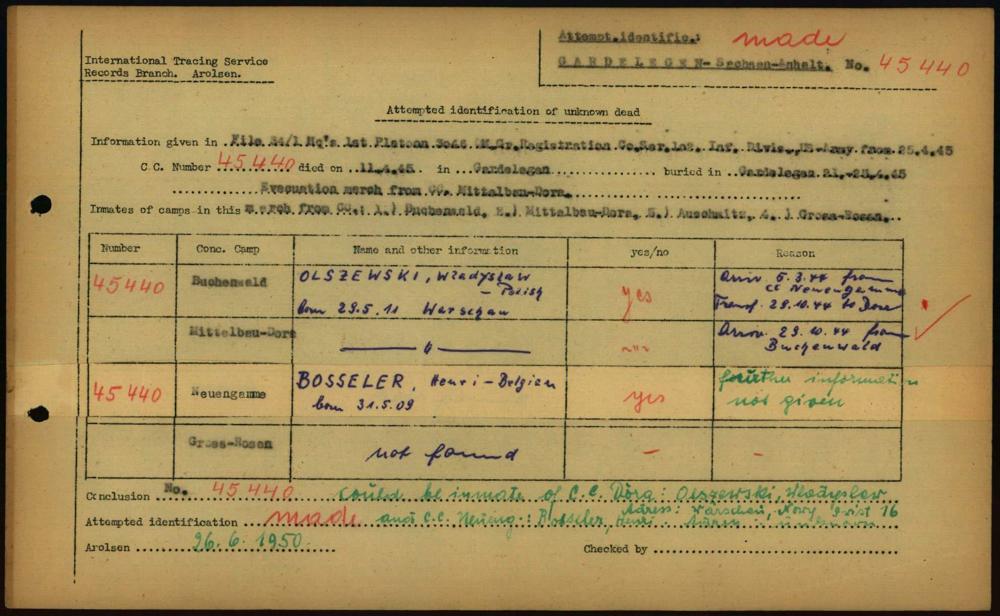 International Tracing Service
Records Branch. Arolsen.
Attempt.identific.: made
GARDELEGEN-Sachsen-Anhalt. No. 45440
Attempted identification of unknown dead
Information given in File 54/1 Hq's 1st Platoon Gr.Registration Co. Inf. Divis., US-Army from 25.4.45
C.C. Number 45440 died on 11.4.45 in Gardelegen buried in Gardelegen 21.-25.4.45
Evacuation march from CC. Mittelbau-Dora.
Inmates of camps in this march from CC.: 1.) Buchenwald, 2.) Mittelbau-Dora, 3.) Auschwitz, 4.) Gross-Rosen.
Number Conc. Camp Name and other information yes/no Reason
45440 Buchenwald OLSZEWSKI, Władysław - Polish born 29.5.11 Warschau yes Arriv 5.3.44 from CC Neuengamme Transf. 29.10.44 to Dora
Mittelbau-Dora — " — Arriv. 29.10.44 from Buchenwald
45440 Neuengamme BOSSELER, Henri - Belgian born 31.5.09 yes further information not given
Gross-Rosen not found - -
Conclusion No. 45440 could be inmate of C.C. Dora: Olszewski, Władysław
Adress: Warschau, Nowy Swist 16
Attempted identification made and C.C. Neueng.: Bosseler, Henri Adress unknown
Arolsen 26.6.1950. Checked by